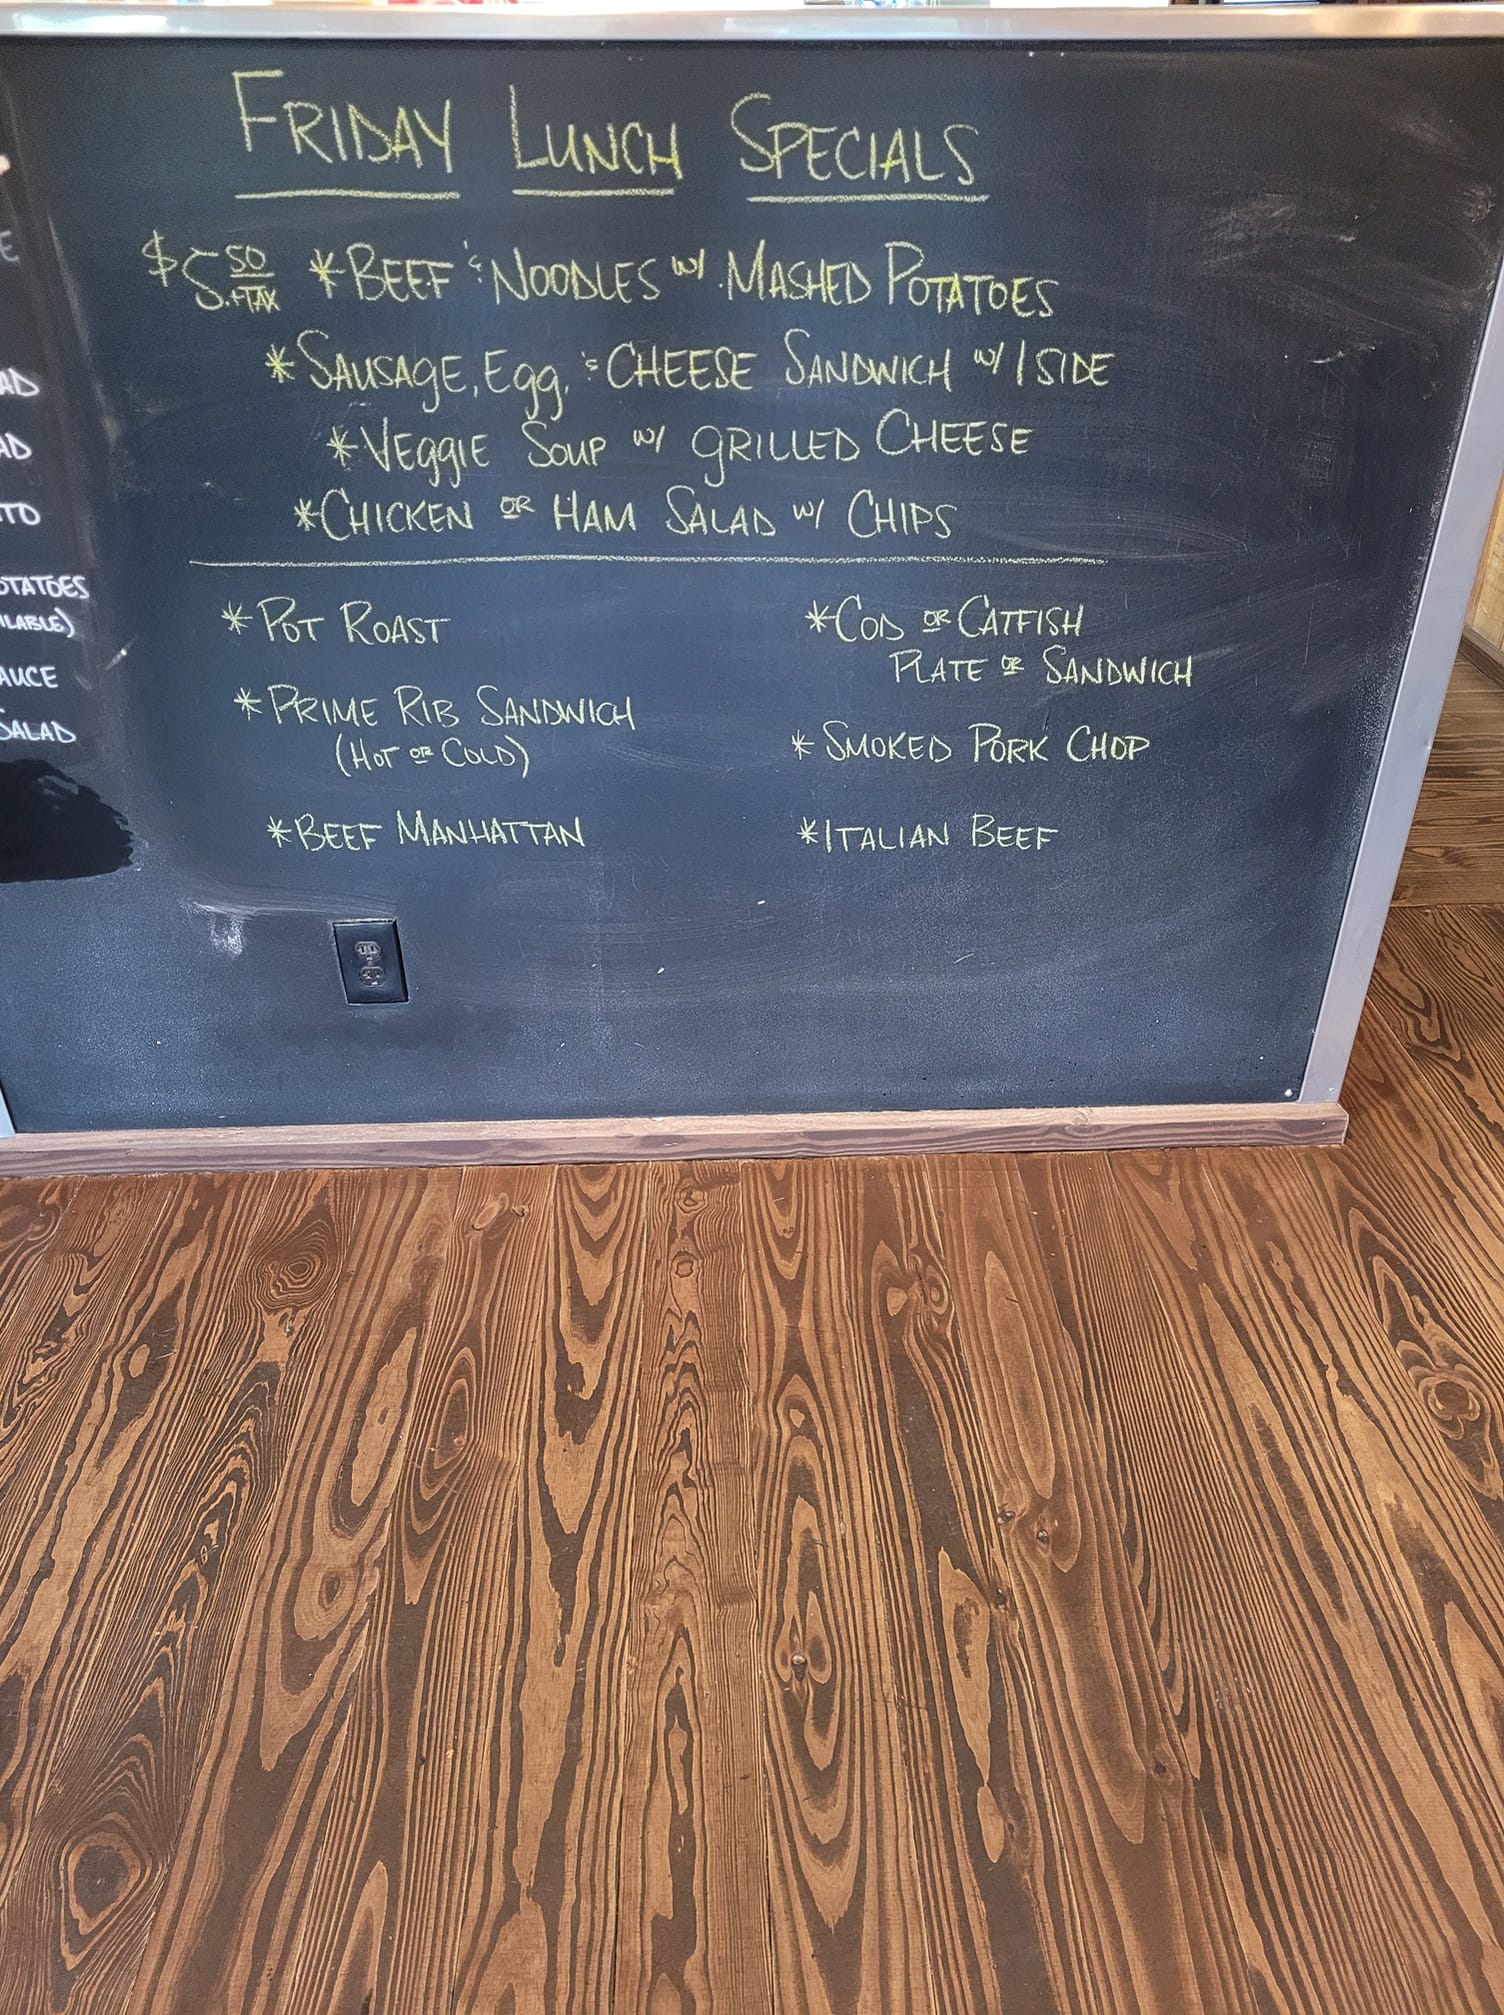 FRIDAY LUNCH SPECIALS
$5.50 +TAX *BEEF & NOODLES W/ MASHED POTATOES
*SAUSAGE, Egg, & CHEESE SANDWICH W/ 1 SIDE
*VEggIE SOUP W/ GRILLED CHEESE
*CHICKEN OR HAM SALAD W/ CHIPS
*POT ROAST
*PRIME RIB SANDWICH
(HOT OR COLD)
*BEEF MANHATTAN
*COD OR CATFISH
PLATE OR SANDWICH
*SMOKED PORK CHOP
*ITALIAN BEEF
SALAD